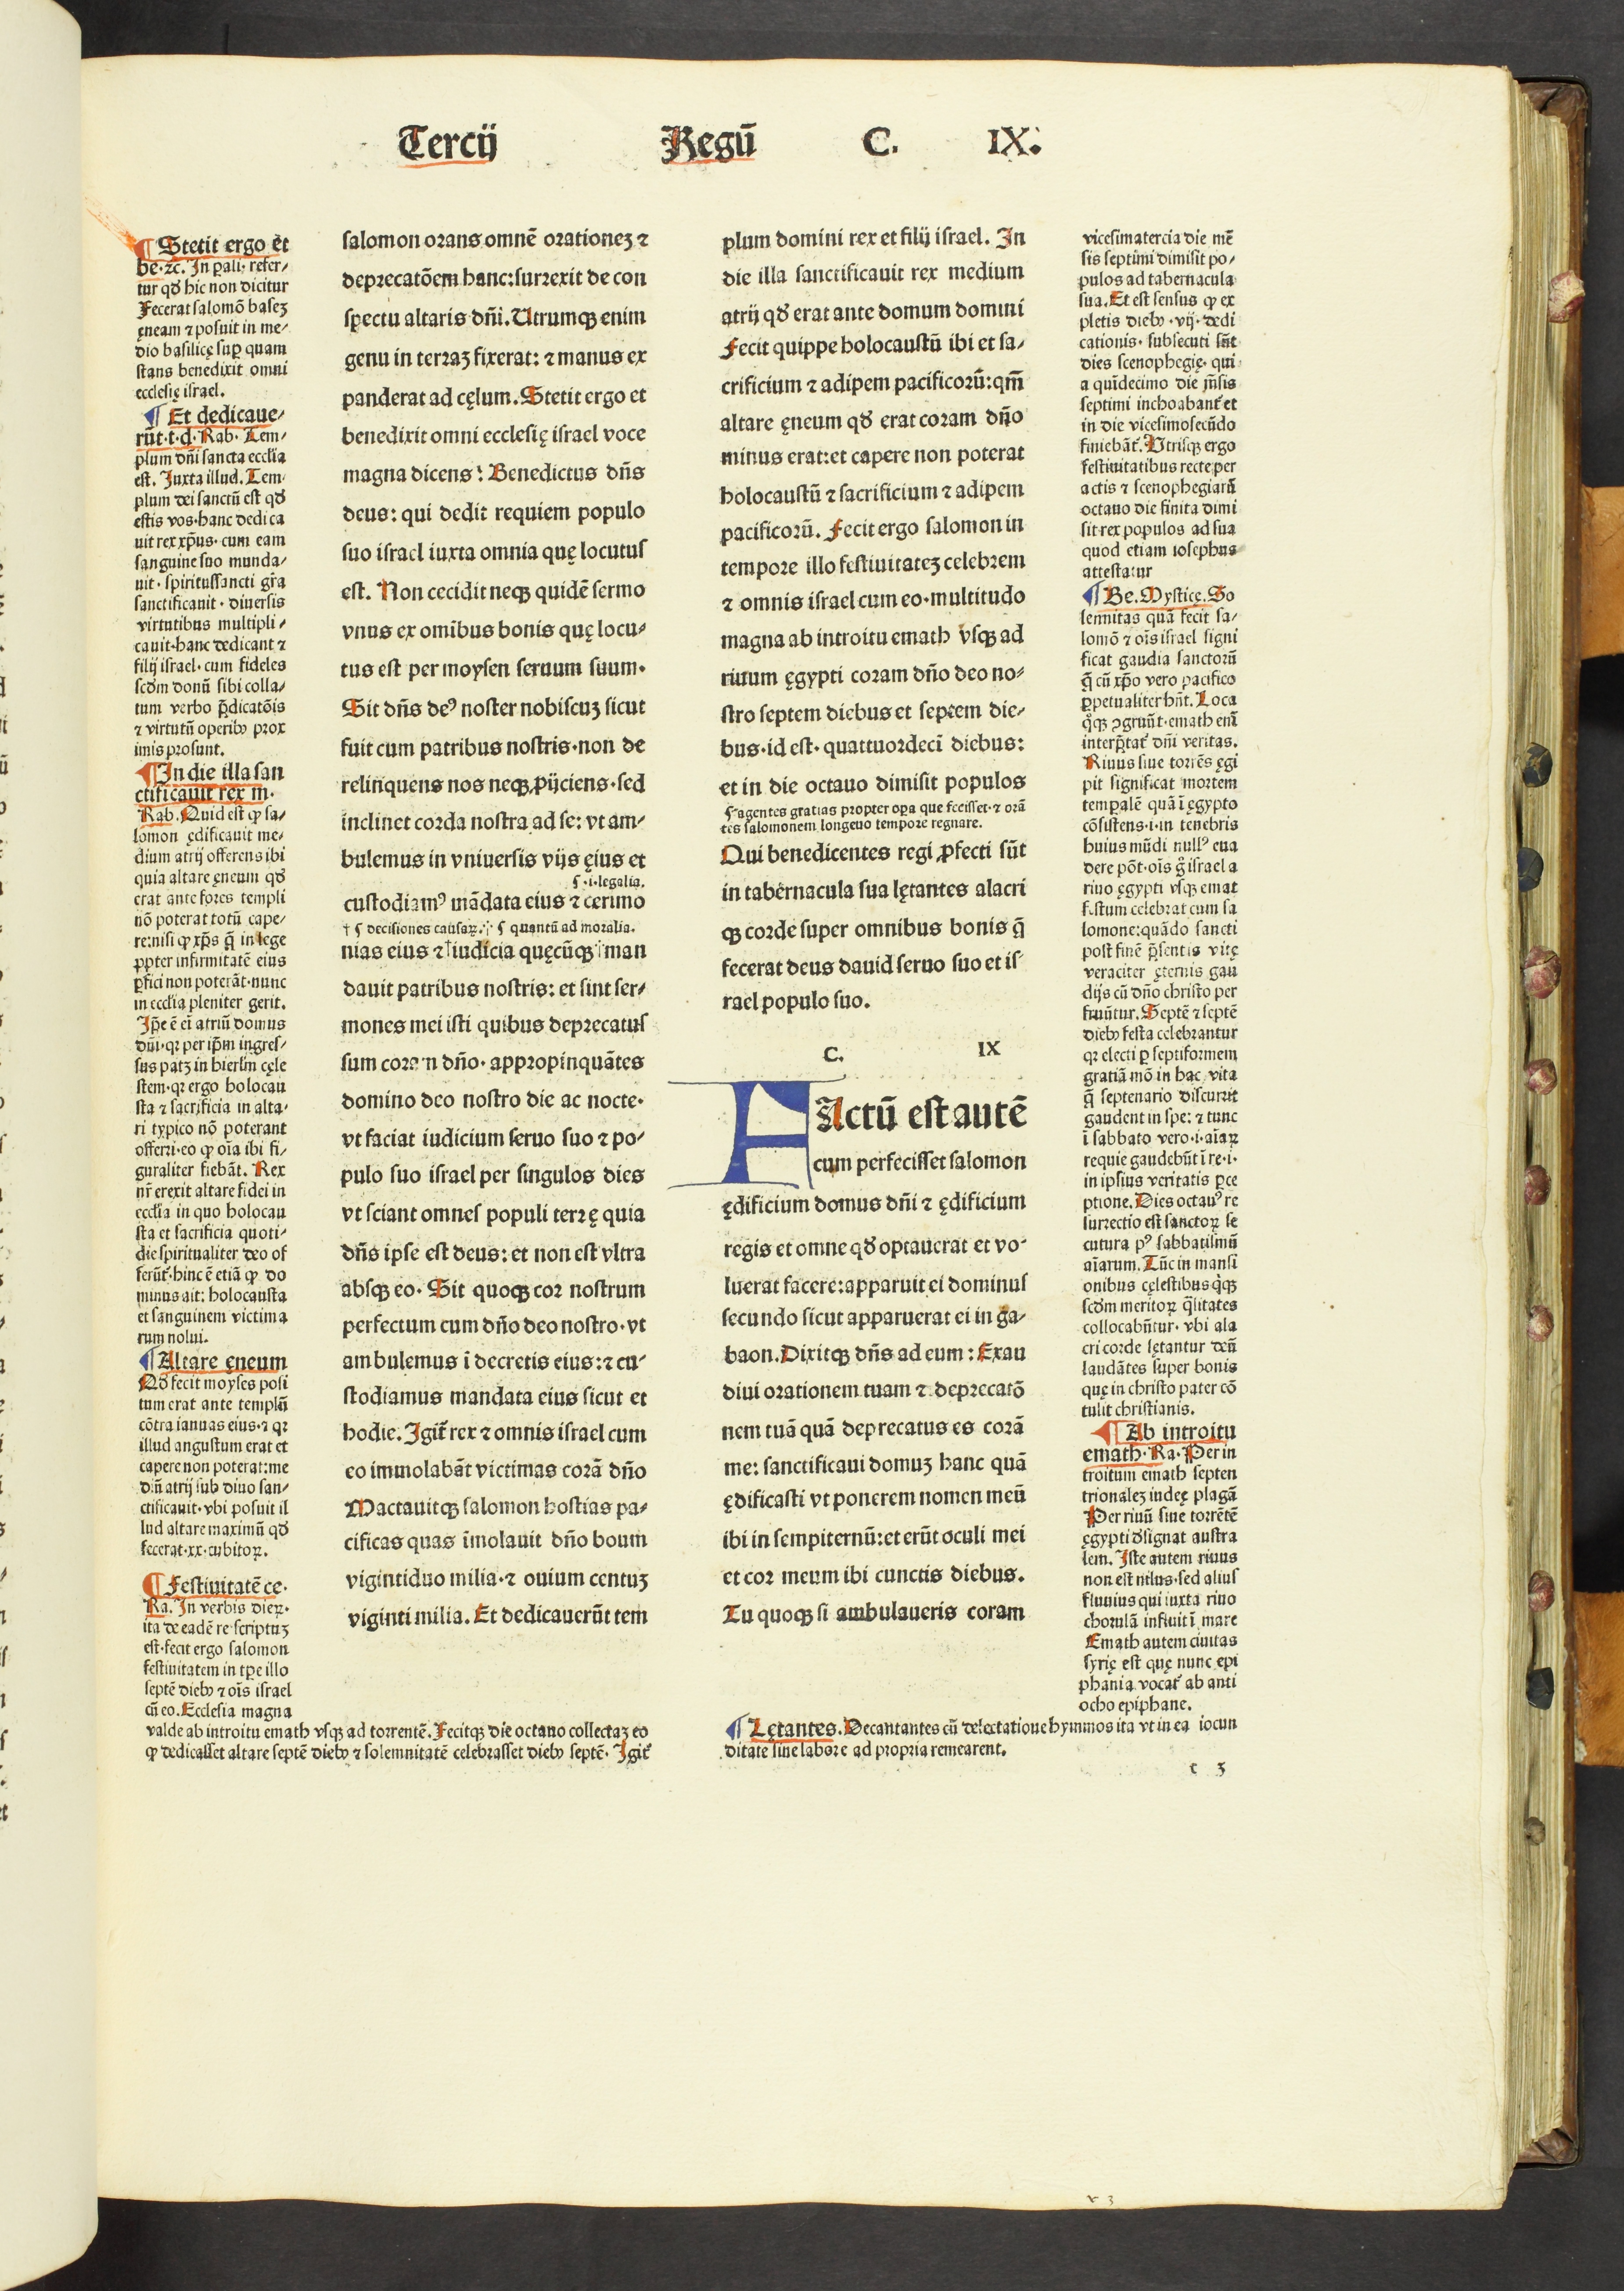 Tercij Regū C. IX.
¶ Stetit ergo et
be·⁊c. In pali· refer/
tur qđ hic non dicitur
Fecerat salomō baseʒ
ęneam ⁊ posuit in me/
dio basilicę sup quam
stans benedixit omni
ecclesię israel.
¶ Et dedicaue/
rūt·t·d· Rab· Tem/
plum dñi sancta ecclia
est. Juxta illud. Tem
plum dei sanctū est qđ
estis vos·hanc dedica
uit rex xp̄us· cum eam
sanguine suo munda/
uit· spiritussancti gr̄a
sanctificauit· diuersis
virtutibus multipli/
cauit·hanc dedicant ⁊
filij israel· cum fideles
scđm donū sibi colla/
tum verbo p̄dicatōis
⁊ virtutū operibꝫ prox
imis prosunt.
¶ In die illa san
ctificauit rex m·
Rab. Quid est ꝙ sa/
lomon ędificauit me/
dium atrij offerens ibi
quia altare ęneum qđ
erat ante fores templi
nō poterat totū cape/
re:nisi ꝙ xp̄s q̄ in lege
ꝓpter infirmitatē eius
ꝑfici non poterāt·nunc
in ecclia pleniter gerit.
Ip̄e ē ei atriū domus
dñi·qr per ip̄m ingres/
sus patʒ in hierlm cęle
stem·qr ergo holocau
sta ⁊ sacrificia in alta/
ri typico nō poterant
offerri·eo ꝙ oīa ibi fi/
guraliter fiebāt. Rex
nr̄ erexit altare fidei in
ecclia in quo holocau
sta et sacrificia quoti/
die spiritualiter deo of
ferūt·hinc ē etiā ꝙ do
minus ait: holocausta
et sanguinem victima
rum nolui.
¶ Altare ęneum
Qđ fecit moyses posi
tum erat ante templū
cōtra ianuas eius·⁊ qr
illud angustum erat et
capere non poterat:me
diū atrij sub diuo san/
ctificauit·vbi posuit il
lud altare maximū qđ
fecerat·xx·cubitoꝝ.
¶ Festiuitatē ce·
Ra. In verbis dieꝝ·
ita de eadē re scriptuʒ
est·fecit ergo salomon
festiuitatem in tp̄e illo
septē diebꝫ ⁊ oīs israel
cū eo. Ecclesia magna
valde ab introitu emath vsqꝫ ad torrentē. Fecitqꝫ die octano collectaʒ eo
ꝙ dedicasset altare septē diebꝫ ⁊ solemnitatē celebrasset diebꝫ septē. Igit᷑
salomon orans omnē orationeʒ ⁊
deprecatōem hanc:surrexit de con
spectu altaris dñi. Utrumqꝫ enim
genu in terraʒ fixerat: ⁊ manus ex
panderat ad cęlum. Stetit ergo et
benedixit omni ecclesię israel voce
magna dicens: Benedictus dñs
deus: qui dedit requiem populo
suo israel iuxta omnia quę locutus
est. Non cecidit neqꝫ quidē sermo
vnus ex omībus bonis quę locu/
tus est per moysen seruum suum·
Sit dñs deꝰ noster nobiscuʒ sicut
fuit cum patribus nostris·non de
relinquens nos neqꝫ ꝓijciens·sed
inclinet corda nostra ad se: vt am/
bulemus in vniuersis vijs ęius et
¶·i·legalia.
custodiamꝰ mādata eius ⁊ cerimo
† ¶ decisiones causaꝝ. ¶ quantū ad moralia.
nias eius ⁊ iudicia quęcūqꝫ man
dauit patribus nostris: et sint ser/
mones mei isti quibus deprecatus
sum coram dño· appropinquātes
domino deo nostro die ac nocte·
vt faciat iudicium seruo suo ⁊ po/
pulo suo israel per singulos dies
vt sciant omnes populi terrę quia
dñs ipse est deus: et non est vltra
absqꝫ eo. Sit quoqꝫ cor nostrum
perfectum cum dño deo nostro·vt
ambulemus ī decretis eius:⁊ cu/
stodiamus mandata eius sicut et
hodie. Igit᷑ rex ⁊ omnis israel cum
eo immolabāt victimas corā dño
Mactauitqꝫ salomon hostias pa/
cificas quas īmolauit dño boum
vigintiduo milia·⁊ ouium centuʒ
viginti milia. Et dedicauerūt tem
plum domini rex et filij israel. In
die illa sanctificauit rex medium
atrij qđ erat ante domum domini
Fecit quippe holocaustū ibi et sa/
crificium ⁊ adipem pacificorū:qm̄
altare ęneum qđ erat coram dño
minus erat:et capere non poterat
holocaustū ⁊ sacrificium ⁊ adipem
pacificorū. Fecit ergo salomon in
tempore illo festiuitateʒ celebrem
⁊ omnis israel cum eo·multitudo
magna ab introitu emath vsqꝫ ad
riuum ęgypti coram dño deo no/
stro septem diebus et septem die/
bus·id est· quattuordecī diebus:
et in die octauo dimisit populos
¶·agentes gratias propter oꝑa que fecisset·⁊ orā
tes salomonem longeuo tempore regnare.
Qui benedicentes regi ꝓfecti sūt
in tabernacula sua lętantes alacri
qꝫ corde super omnibus bonis q̄
fecerat deus dauid seruo suo et is
rael populo suo.
C. IX
FActū est autē
cum perfecisset salomon
ędificium domus dñi ⁊ ędificium
regis et omne qđ optauerat et vo/
luerat facere:apparuit ei dominus
secundo sicut apparuerat ei in ga/
baon. Dixitqꝫ dñs ad eum: Exau
diui orationem tuam ⁊ deprecatō
nem tuā quā deprecatus es corā
me: sanctificaui domuʒ hanc quā
ędificasti vt ponerem nomen meū
ibi in sempiternū:et erūt oculi mei
et cor meum ibi cunctis diebus.
Tu quoqꝫ si ambulaueris coram
vicesimatercia die mē
sis septimi dimisit po/
pulos ad tabernacula
sua. Et est sensus ꝙ ex
pletis diebꝫ·vij· dedi
cationis· subsecuti sūt
dies scenophegię· qui
a quīdecimo die m̄sis
septimi inchoabant᷑ et
in die vicesimosecūdo
finiebāt᷑. Utrisqꝫ ergo
festiuitatibus recte per
actis ⁊ scenophegiarū
octauo die finita dimi
sit rex populos ad sua
quod etiam iosephus
attestatur
¶ Be. Mystice. So
lennitas quā fecit sa/
lomō ⁊ oīs israel signi
ficat gaudia sanctorū
q̄ cū xp̄o vero pacifico
ꝑpetualiter hn̄t. Loca
q̊qꝫ ꝯgruūt·emath enī
interp̄tat᷑ dñi veritas.
Riuus siue torrēs ęgi
pti significat mortem
tempalē quā ī ęgypto
cōsistens·i·in tenebris
huius mūdi nullꝰ eua
dere pōt·oīs g̊ israel a
riuo ęgypti vsqꝫ emat
festum celebrat cum sa
lomone:quādo sancti
post finē p̄sentis vitę
veraciter ęternis gau
dijs cū dño christo per
fruūtur. Septē ⁊ septē
diebꝫ festa celebrantur
qr electi ꝑ septiformem
gratiā mō in hac vita
q̄ septenario discurrit
gaudent in spe: ⁊ tunc
ī sabbato vero·i·aīaꝝ
requie gaudebūt ī re·i·
in ipsius veritatis ꝑce
ptione. Dies octauꝰ re
surrectio est sanctoꝝ se
cutura pꝰ sabbatismū
aīarum. Tūc in mansi
onibus cęlestibus q̄qꝫ
scđm meritoꝝ q̄litates
collocabūtur· vbi ala
cri corde lętantur deū
laudātes super bonis
quę in christo pater cō
tulit christianis.
¶ Ab introitu
emath· Ra· Per in
troitum emath septen
trionaleʒ iudeę plagā
Per riuū siue torrētē
ęgypti dsignat austra
lem. Iste autem riuus
non est nilus·sed alius
fluuius qui iuxta rino
chorulā influit ī mare
Emath autem ciuitas
syrię est quę nunc epi
phania vocat᷑ ab anti
ocho epiphane.
¶ Lętantes. Decantantes cū delectatione hymmos ita vt in ea iocun
ditate siue labore ad propria remearent.
t 3